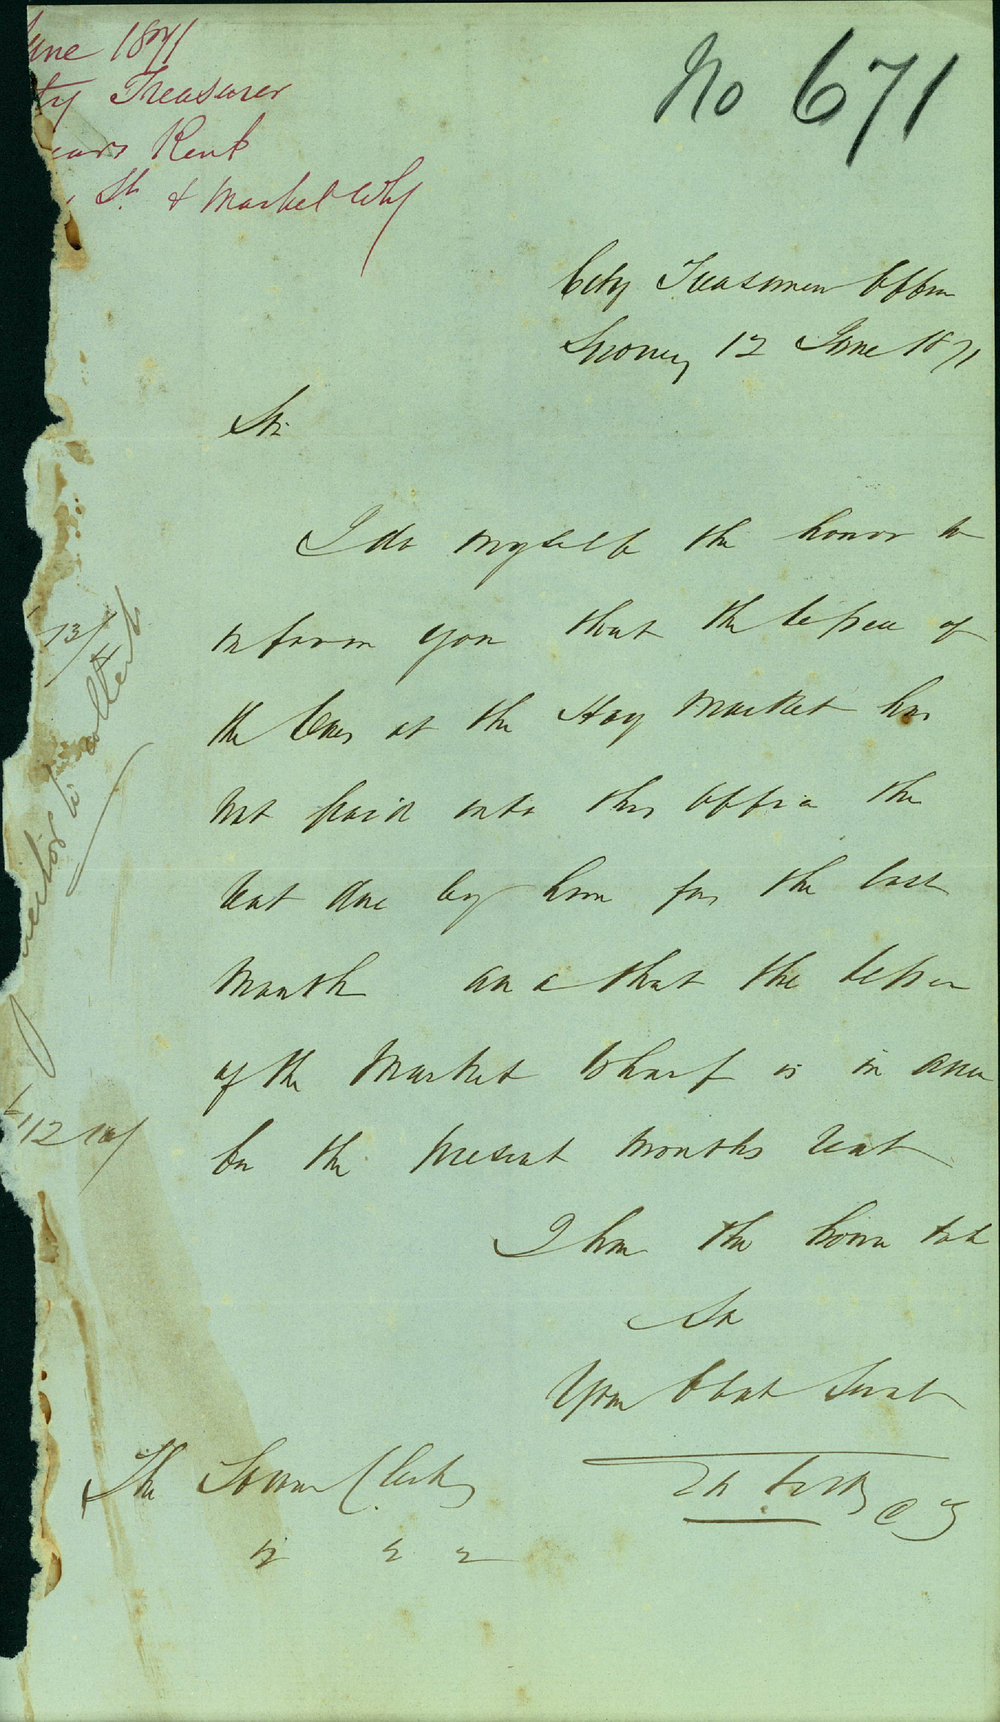 une 1871
ty Treasurer
ears Rent
St. & Market Whf
No 671
City Treasurers Office
Sydney 12 June 1871
Sir
I do myself the honor to
inform you that the lessee of
the at the Hay Market has
not paid into this office the
rent due by him for the last
month and that the lessee
of the Market Wharf is in arrear
for the present months rent
I have the honor to be
Sir
Your Obedt Servt
The Town Clerk
13/
12